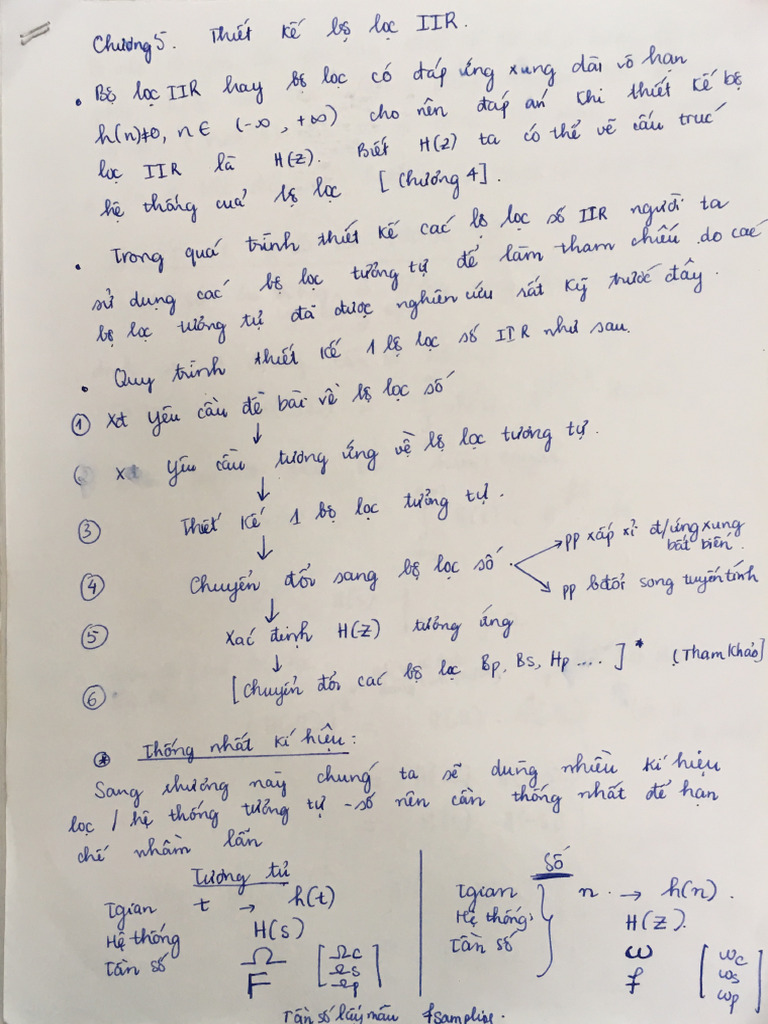 Chương 5. Thiết kế bộ lọc IIR.
• Bộ lọc IIR hay bộ lọc có đáp ứng xung dài vô hạn
h(n)≠0, n ∈ (-∞, +∞) cho nên đáp án khi thiết kế bộ
lọc IIR là H(z). Biết H(z) ta có thể vẽ cấu trúc
hệ thống của bộ lọc [Chương 4].
• Trong quá trình thiết kế các bộ lọc số IIR người ta
sử dụng các bộ lọc tương tự để làm tham chiếu do các
bộ lọc tương tự đã được nghiên cứu rất kỹ trước đây.
• Quy trình thiết kế 1 bộ lọc số IIR như sau.
① Xđ yêu cầu đề bài về bộ lọc số
↓
Xđ yêu cầu tương ứng về bộ lọc tương tự.
↓
③ Thiết kế 1 bộ lọc tương tự.
↓
④ Chuyển đổi sang bộ lọc số. → pp xấp xỉ đ/ứng xung
bất biến.
→ pp bđổi song tuyến tính
↓
⑤ Xác định H(z) tương ứng
↓
⑥ [Chuyển đổi các bộ lọc Bp, Bs, Hp ....]* (Tham khảo]
⊛ Thống nhất kí hiệu:
Sang chương này chúng ta sẽ dùng nhiều kí hiệu
lọc / hệ thống tương tự - số nên cần thống nhất để hạn
chế nhầm lẫn
Tương tự
Tgian t → h(t)
Hệ thống H(s)
Tần số Ω [Ωc
F Ωs
Ωp]
Số
Tgian n → h(n).
Hệ thống H(z).
Tần số ω [ωc
f ωs
ωp]
Tần số lấy mẫu fsampling.